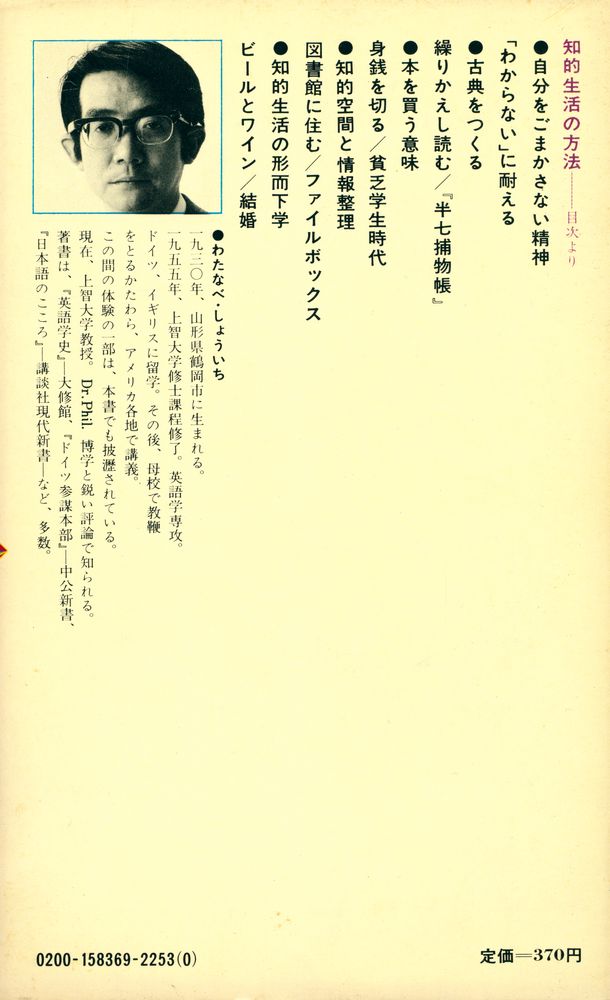 知的生活の方法――目次より
●自分をごまかさない精神
「わからない」に耐える
●古典をつくる
繰りかえし読む/『半七捕物帳』
●本を買う意味
身銭を切る/貧乏学生時代
●知的空間と情報整理
図書館に住む/ファイルボックス
●知的生活の形而下学
ビールとワイン/結婚
●わたなべ・しょういち
一九三〇年、山形県鶴岡市に生まれる。
一九五五年、上智大学修士課程修了。英語学専攻。
ドイツ、イギリスに留学。その後、母校で教鞭
をとるかたわら、アメリカ各地で講義。
この間の体験の一部は、本書でも披瀝されている。
現在、上智大学教授。Dr.Phil. 博学と鋭い評論で知られる。
著書は、『英語学史』―大修館、『ドイツ参謀本部』―中公新書、
『日本語のこころ』―講談社現代新書―など、多数。
0200-158369-2253(0)
定価=370円